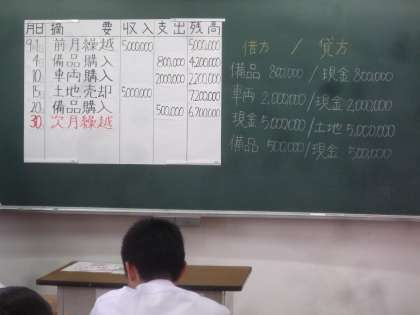 月日 摘要 収入 支出 残高
9.1 前月繰越 5,000,000 5,000,000
4 備品購入 800,000 4,200,000
10 車両購入 2,000,000 2,200,000
15 土地売却 5,000,000 7,200,000
20 備品購入 500,000 6,700,000
30 次月繰越
借方 / 貸方
備品 800,000 / 現金 800,000
車両 2,000,000 / 現金 2,000,000
現金 5,000,000 / 土地 5,000,000
備品 500,000 / 現金 500,000